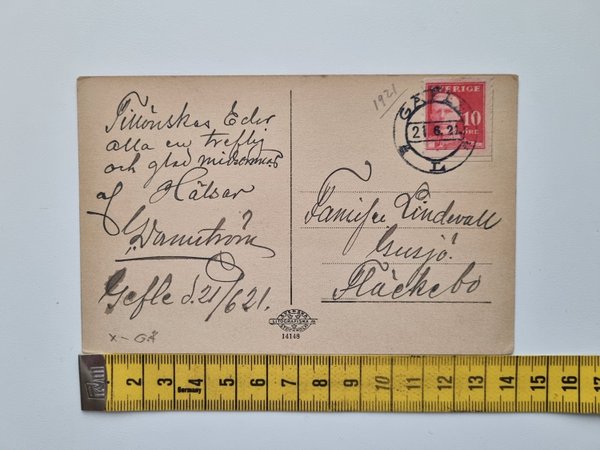 Tillönskas Eder
alla en treflig
och glad midsommar
af Hälsar
G. Damström
Gefle d 21/6 21.
x-GÄ
1921
GÄVLE
21.6.21
L
SVERIGE
10
ÖRE
Familjen Lindevall
Gusjö.
Fläckebo
SVENSKA
LITOGRAFISKA
STOCKHOLM
14148
1 2 3 4 5 6 7 8 9 10 11 12 13 14 15 16 17
Germany